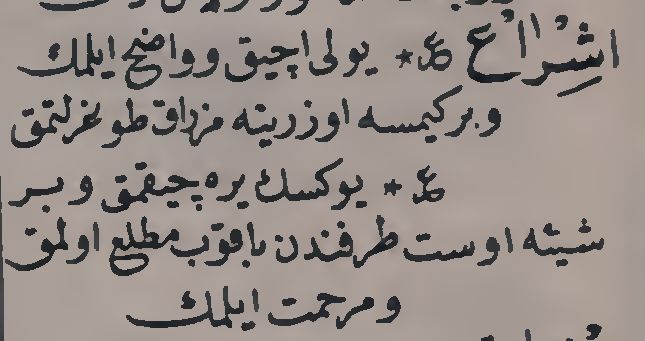 اِشْرَاع ع * يولى اچيق وواضح ايلمك
وبر كيمسه اوزرينه مزراق طوغرلتمق
ع * يوكسك يره چيقمق وبر
شيئه اوست طرفندن باقوب مطلع اولمق
ومرحمت ايلمك